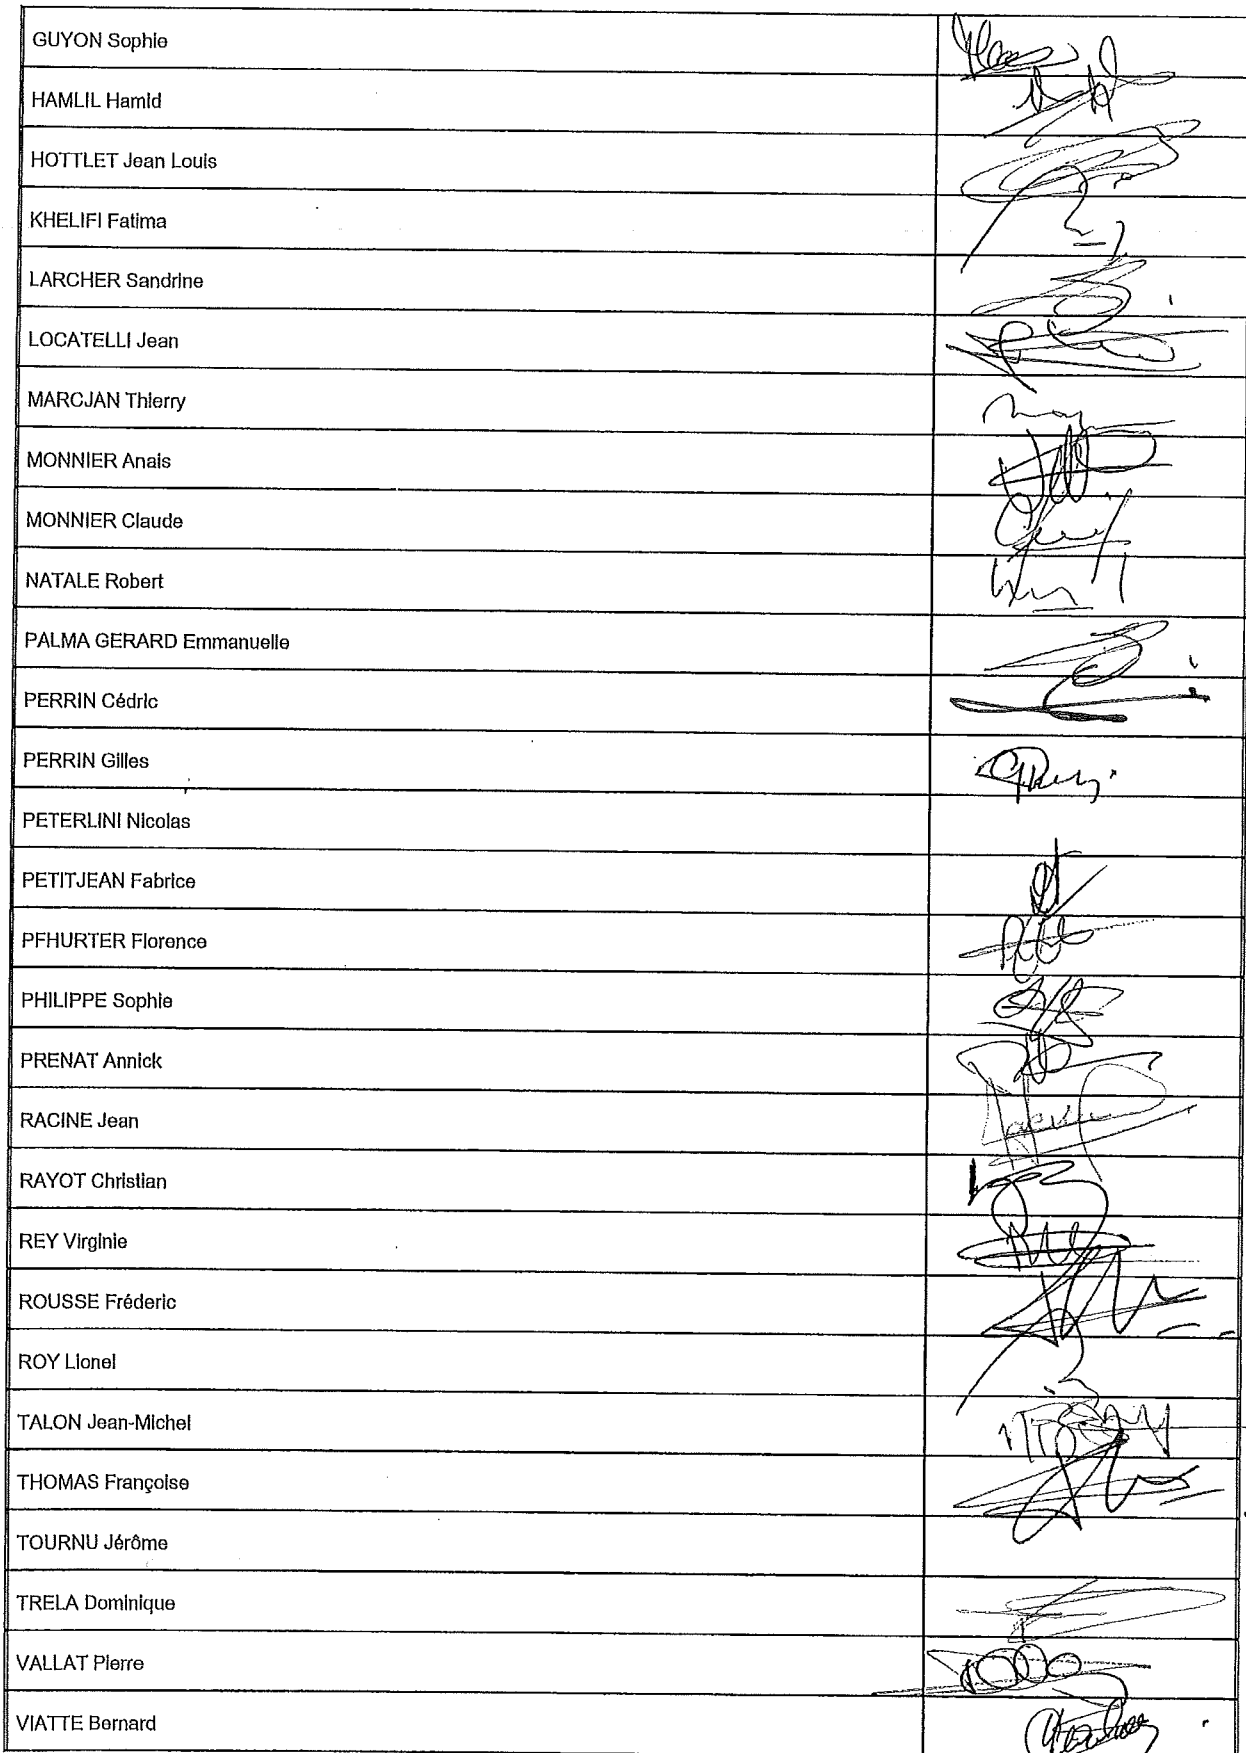 GUYON Sophie
HAMLIL Hamid
HOTTLET Jean Louis
KHELIFI Fatima
LARCHER Sandrine
LOCATELLI Jean
MARCJAN Thierry
MONNIER Anais
MONNIER Claude
NATALE Robert
PALMA GERARD Emmanuelle
PERRIN Cédric
PERRIN Gilles
PETERLINI Nicolas
PETITJEAN Fabrice
PFHURTER Florence
PHILIPPE Sophie
PRENAT Annick
RACINE Jean
RAYOT Christian
REY Virginie
ROUSSE Fréderic
ROY Lionel
TALON Jean-Michel
THOMAS Françoise
TOURNU Jérôme
TRELA Dominique
VALLAT Pierre
VIATTE Bernard